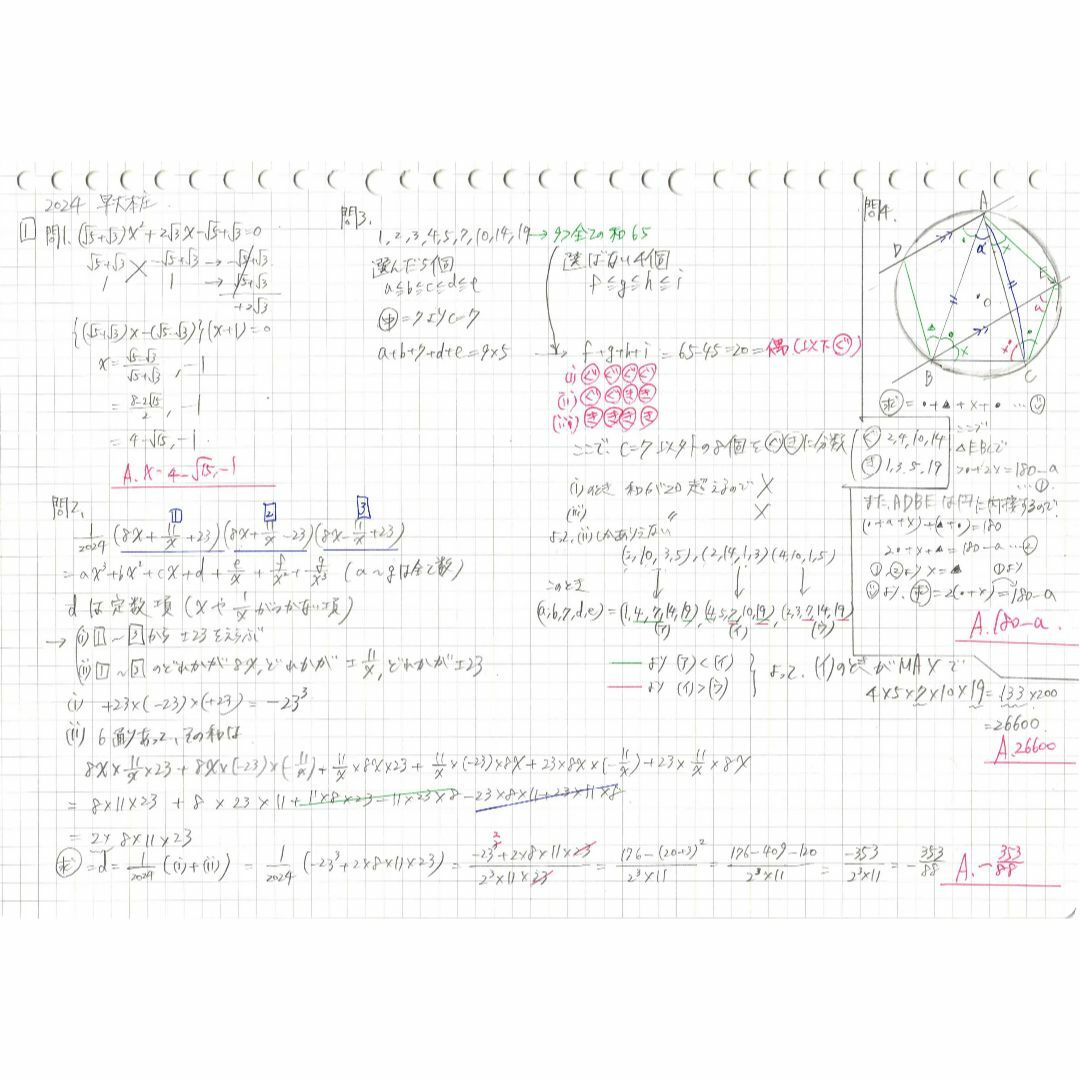 2024 早大本庄.
1 問1. (√5+√3)x²+2√3x-√5+√3=0
√5+√3 -√5+√3 → -√5+√3
1 1 → √5+√3
+2√3
{(√5+√3)x-(√5-√3)}(x+1)=0
x = (√5-√3)/(√5+√3), -1
= (8-2√15)/2, -1
= 4-√15, -1
A. x=4-√15, -1
問2.
1 2 3
1/2024 (8x+11/x+23)(8x+11/x-23)(8x-11/x+23)
= ax³+bx²+cx+d+e/x+f/x²+g/x³ (a~gは全て数)
dは定数項(xや1/xがつかない項)
→ (i) 1~3から±23をえらぶ
(ii) 1~3のどれかが8x,どれかが±11/x,どれかが±23
i) +23×(-23)×(+23) = -23³
(ii) 6通りあって、その和は
8x×11/x×23+8x×(-23)×(-11/x)+11/x×8x×23+11/x×(-23)×8x+23×8x×(-11/x)+23×11/x×8x
= 8×11×23 + 8×23×11+11×8×23-11×23×8-23×8×11+23×11×8
= 2×8×11×23
求 = d = 1/2024 ((i)+(ii)) = 1/2024 (-23³+2×8×11×23) = (-23³+2×8×11×23)/(2³×11×23) = (176-(20+3)²)/(2³×11) = (176-409-120)/(2³×11) = -353/(2³×11) = -353/88
2
A. -353/88
問3.
1,2,3,4,5,7,10,14,19 → 9つ全ての和65
選んだ5個
a≦b≦c≦d≦e
中=7よりc=7
a+b+7+d+e=9×5
選ばない4個
f≦g≦h≦i
→ f+g+h+i = 65-45=20=偶(以下ぐ)
(i) ぐぐぐぐ
(ii) ぐぐきき
(iii) きききき
ここで、c=7以外の8個をぐきに分類
ぐ 2,4,10,14
き 1,3,5,19
(i)のとき 和が20超えるので ×
(iii) 〃 ×
よって、(ii)しかありえない
(2,10,3,5), (2,14,1,3) (4,10,1,5)
このとき
(a,b,7,d,e) = (1,4,7,14,19), (4,5,7,10,19), (2,3,7,14,19)
(ア) (イ) (ウ)
より (ア)<(イ)
より (イ)>(ウ)
よって、(イ)のときがMAXで
4×5×7×10×19=133×200
=26600
A. 26600
問4.
A
D
E
O
B
C
a
x
求 = •+▲+x+• … ウ
ここで
△EBCで
2•+2x=180-a
… ①
また、ADBEは円に内接するので
(•+a+x)+(▲+•)=180
2•+x+▲=180-a … ②
①,②より x=▲
ウより、求=2(•+x)=180-a
①より
A. 180-a.